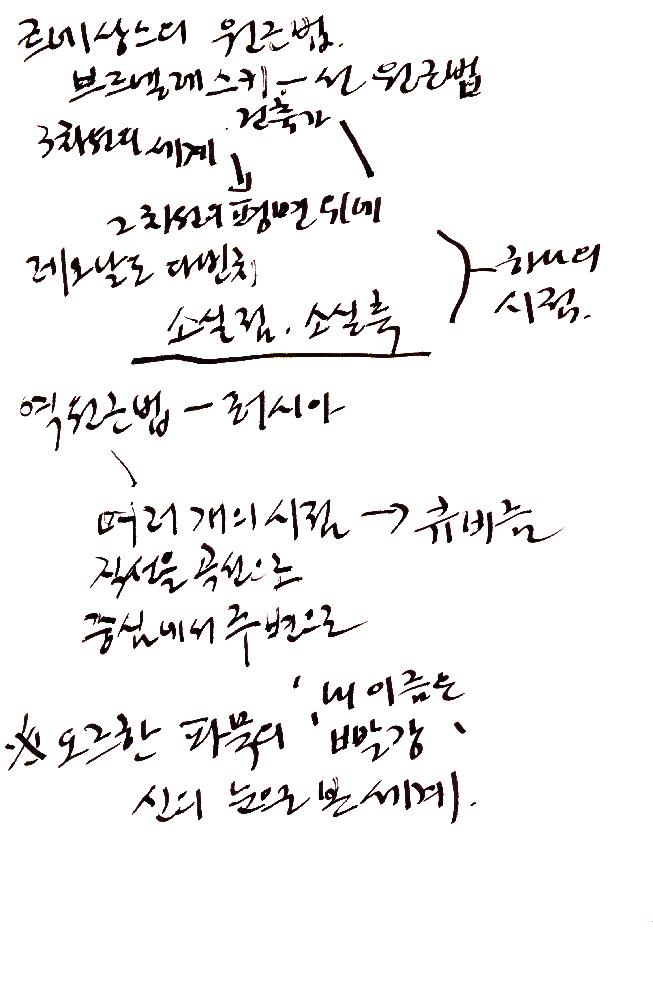 르네상스의 원근법.
브르넬레스키 - 선 원근법
건축가
3차원의 세계
2차원의 평면 위에
레오날도 다빈치
소실점. 소실축
하나의
시점.
역원근법 - 러시아
여러 개의 시점 → 큐비즘
직선을 곡선으로
중심에서 주변으로
※ 오르한 파묵의 '내 이름은
빨강'
신의 눈으로 본 세계.